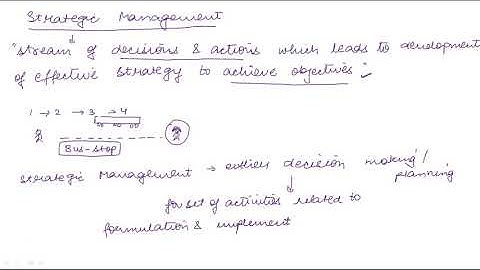 Strategic Management
"stream of decisions & actions which leads to development
of effective strategy to achieve objectives"
1 → 2 → 3 → 4
Bus-stop
Strategic Management → outlies decision making /
planning
for set of activities related to
formulation & implement